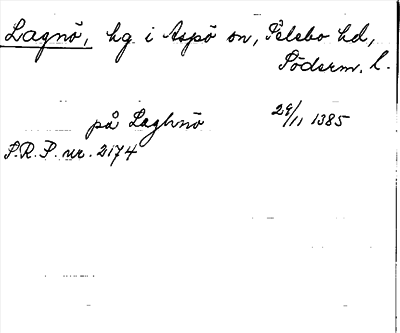 Lagnö, hg i Aspö sn, Selebo hd,
Söderm. l.
på Laghnö 29/11 1385
S.R.P. nr. 2174